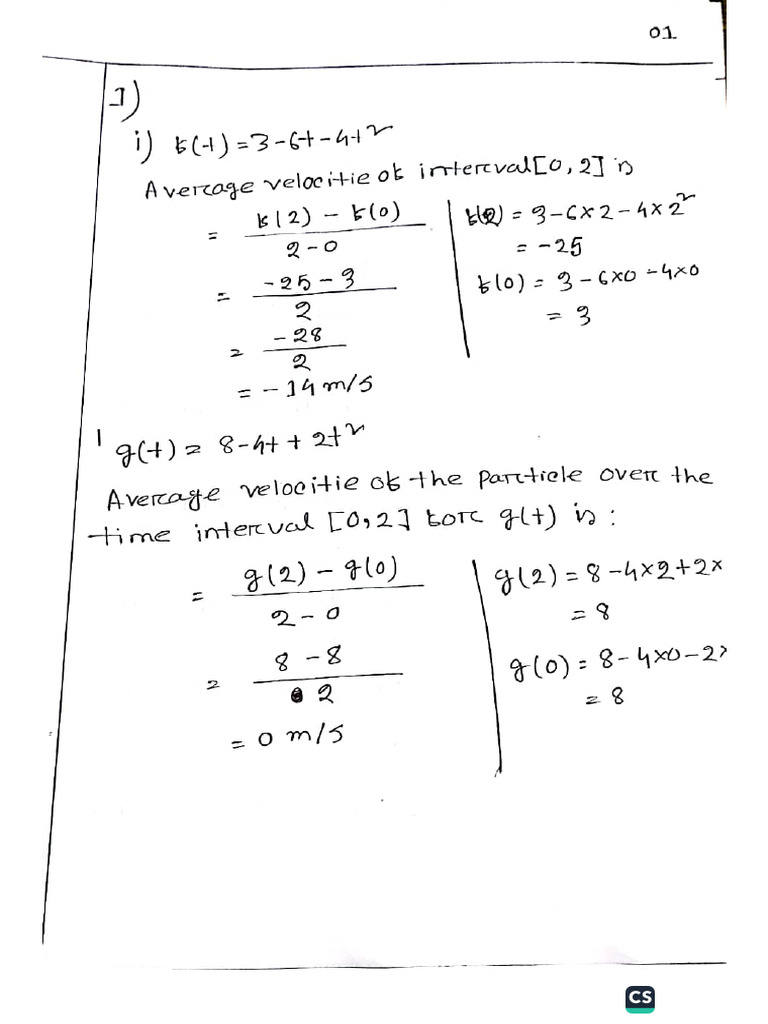 01
1)
i) f(t) = 3-6t-4t²
Average velocitie of interval [0,2] is
= f(2) - f(0) / 2-0
= -25-3 / 2
= -28 / 2
= -14 m/s
f(2) = 3-6×2-4×2²
= -25
f(0) = 3-6×0-4×0
= 3
g(t) = 8-4t+2t²
Average velocitie of the particle over the
time interval [0,2] for g(t) is:
= g(2) - g(0) / 2-0
= 8-8 / 2
= 0 m/s
g(2) = 8-4×2+2×
= 8
g(0) = 8-4×0-2×
= 8
CS